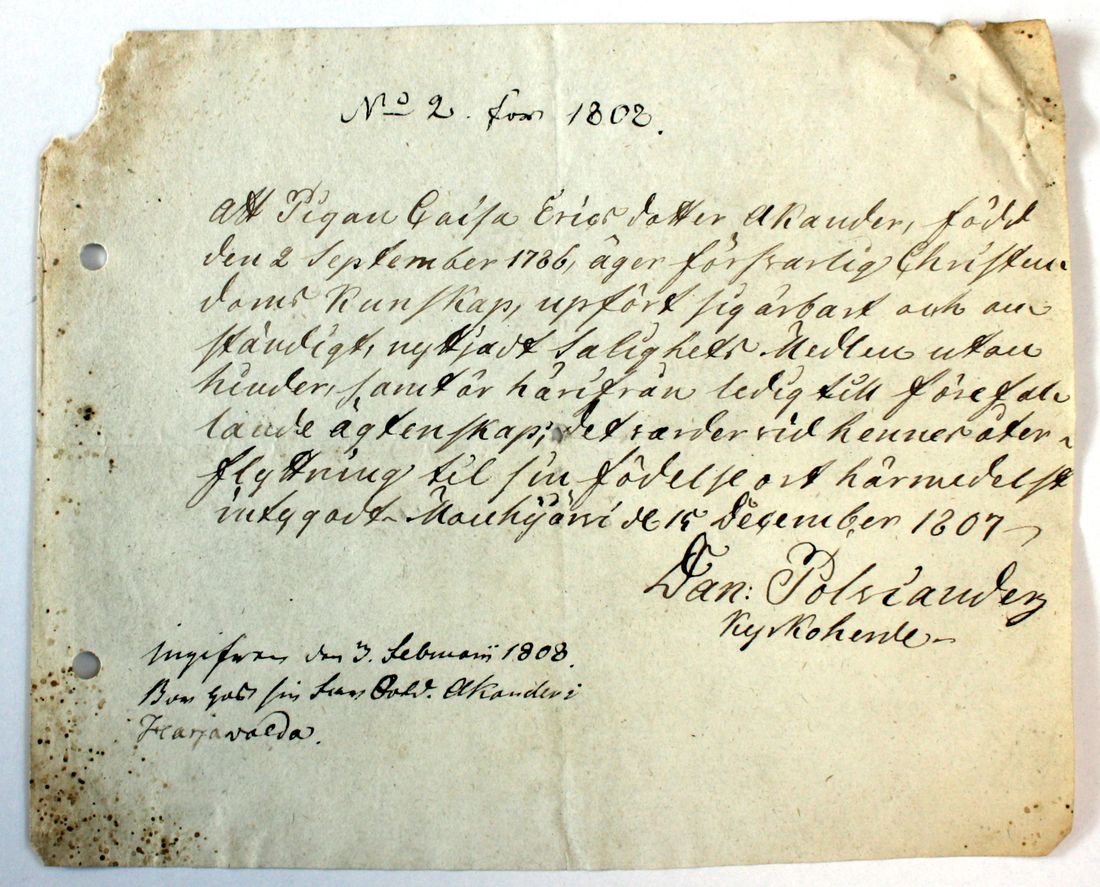 No 2. for 1808.
Att Pigan Caisa Ericsdotter Akander, född
den 2 September 1786, äger försvarlig Christen-
doms Kunskap, upfört sig ärbart och an-
ständigt, nyttjadt Salighets Medlen utan
hinder, samt är härifrån ledig till förefal-
lande ägtenskap; det varder vid hennes åter-
flyttning til sin födelse ort härmedelst
intygadt. Mouhijärvi d 15 December 1807
Dan: Polviander
Kyrkoherde
Ingifven den 3. Februarii 1808.
Bor hos sin Sold. Akander i
Harjavalda.